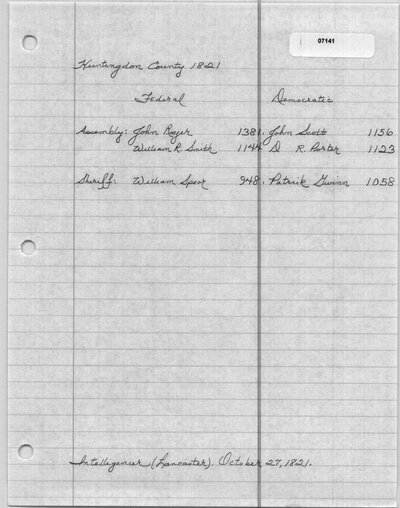 07141
Huntingdon County 1821
Federal Democratic
Assembly: John Royer 1381. John Scott 1156
William R. Smith 1144 D R. Porter 1123
Sheriff: William Speer 948. Patrick Gwinn 1058
Intelligencer (Lancaster). October 27, 1821.